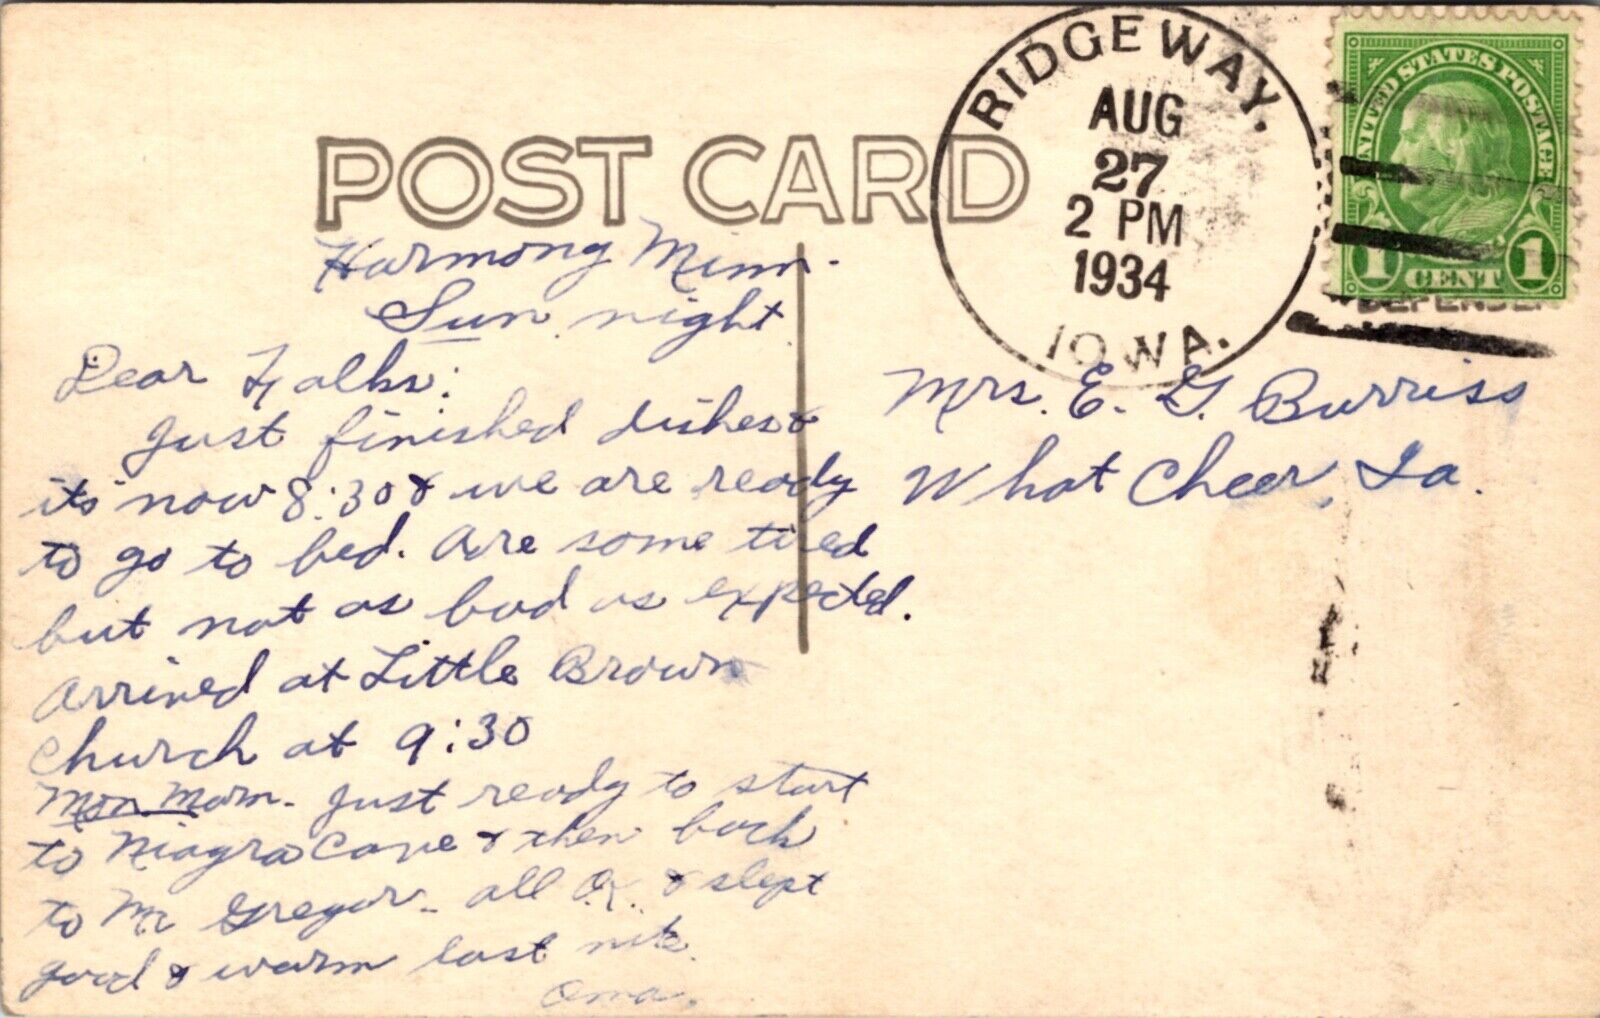 POST CARD
RIDGEWAY.
AUG
27
2 PM
1934
IOWA.
UNITED STATES POSTAGE
1 CENT 1
Harmony Minn.
Sun night
Dear Folks:
Just finished dishes &
its now 8:30 & we are ready
to go to bed. Are some tired
but not as bad as expected.
Arrived at Little Brown
Church at 9:30
Mon. Morn. Just ready to start
to Niagra Cave & then back
to Mc Gregor. all O.K. & slept
good & warm last nite.
Oma.
Mrs. E. G. Burriss
What Cheer, Ia.